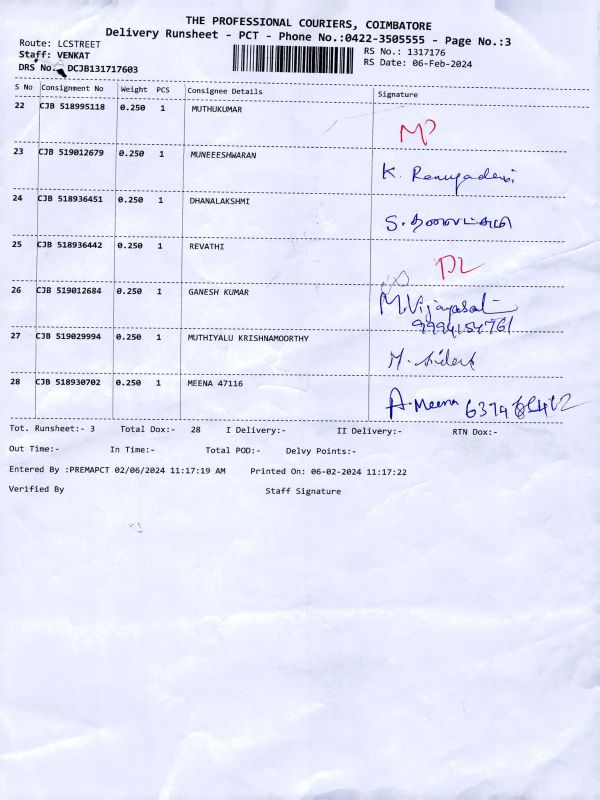 THE PROFESSIONAL COURIERS, COIMBATORE
Delivery Runsheet - PCT - Phone No.:0422-3505555 - Page No.:3
Route: LCSTREET
RS No.: 1317176
Staff: VENKAT
RS Date: 06-Feb-2024
DRS No. DCJB131717603
S No Consignment No Weight PCS Consignee Details Signature
22 CJB 518995118 0.250 1 MUTHUKUMAR
23 CJB 519012679 0.250 1 MUNEEESHWARAN K. Renugadevi
24 CJB 518936451 0.250 1 DHANALAKSHMI
25 CJB 518936442 0.250 1 REVATHI DL
26 CJB 519012684 0.250 1 GANESH KUMAR
9994154761
27 CJB 519029994 0.250 1 MUTHIYALU KRISHNAMOORTHY
28 CJB 518930702 0.250 1 MEENA 47116 A. Meena
Tot. Runsheet:- 3 Total Dox:- 28 I Delivery:- II Delivery:- RTN Dox:-
Out Time:- In Time:- Total POD:- Delvy Points:-
Entered By :PREMAPCT 02/06/2024 11:17:19 AM Printed On: 06-02-2024 11:17:22
Verified By Staff Signature